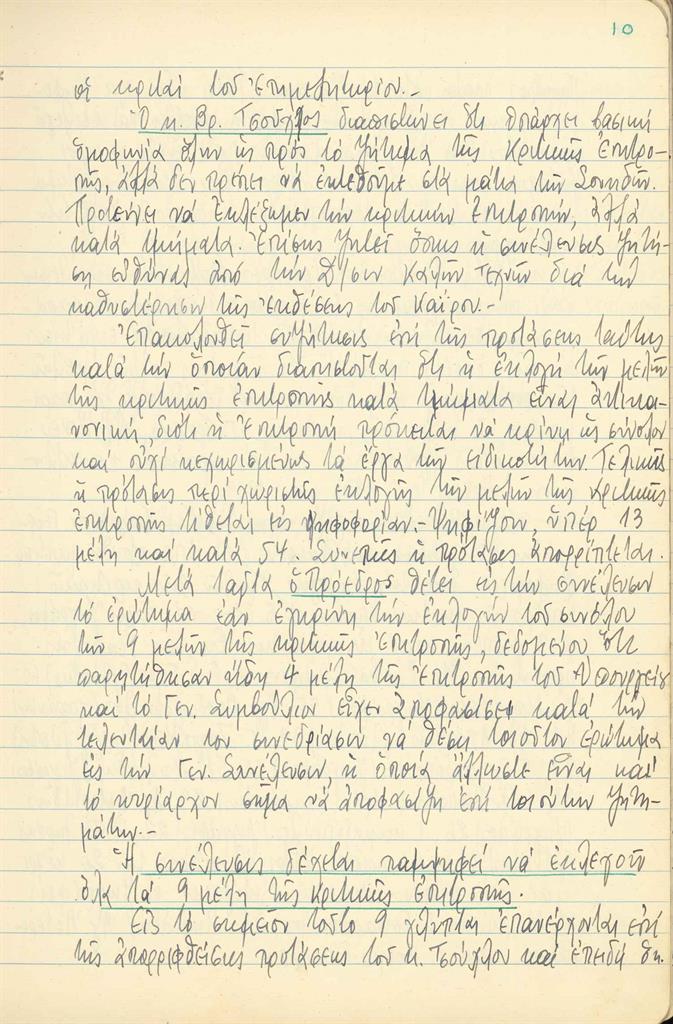 10
οἱ κριταί τοῦ Ἐπιμελητηρίου.-
Ὁ κ. Βρ. Τσούχλος διαπιστώνει ὅτι ὑπάρχει βασική
ὁμοφωνία ὅλων ὡς πρός τό ζήτημα τῆς Κριτικῆς Ἐπιτρο-
πῆς, ἀλλά δέν πρέπει νά ἐκτεθοῦμε στά μάτια τῶν Σουηδῶν.
Προτείνει νά ἐκλέξωμεν τήν κριτικήν ἐπιτροπήν, ἀλλά
κατά τμήματα. Ἐπίσης ζητεῖ ὅπως ἡ συνέλευσις ζητή-
ση εὐθύνας ἀπό τήν Δ/σιν Καλῶν Τεχνῶν διά τήν
καθυστέρησιν τῆς ἐκθέσεως τοῦ Καΐρου.-
Ἐπακολουθεῖ συζήτησις ἐπί τῆς προτάσεως ταύτης
κατά τήν ὁποίαν διαπιστοῦται ὅτι ἡ ἐκλογή τῶν μελῶν
τῆς κριτικῆς ἐπιτροπῆς κατά τμήματα εἶναι ἀντικα-
νονική, διότι ἡ Ἐπιτροπή πρόκειται νά κρίνη ὡς σύνολον
καί οὐχί κεχωρισμένως τά ἔργα τῶν εἰδικοτήτων. Τελικῶς
ἡ πρότασις περί χωριστῆς ἐκλογῆς τῶν μελῶν τῆς κριτικῆς
ἐπιτροπῆς τίθεται εἰς ψηφοφορίαν.- Ψηφίζουν, ὑπέρ 13
μέλη καί κατά 54. Συνεπῶς ἡ πρότασις ἀπορρίπτεται.
Μετά ταῦτα ὁ Πρόεδρος θέτει εἰς τήν συνέλευσιν
τό ἐρώτημα ἐάν ἐγκρίνη τήν ἐκλογήν τοῦ συνόλου
τῶν 9 μελῶν τῆς κριτικῆς Ἐπιτροπῆς, δεδομένου ὅτι
παρητήθησαν ἤδη 4 μέλη τῆς Ἐπιτροπῆς τοῦ Ὑπουργείου
καί τό Γεν. Συμβούλιον εἶχεν ἀποφασίσει κατά τήν
τελευταίαν του συνεδρίασιν νά θέση τοιοῦτον ἐρώτημα
εἰς τήν Γεν. Συνέλευσιν, ἡ ὁποία ἄλλωστε εἶναι καί
τό κυρίαρχον σῶμα νά ἀποφασίζη ἐπί τοιούτων ζητη-
μάτων.-
Ἡ συνέλευσις δέχεται παμψηφεί νά ἐκλεγοῦν
ὅλα τά 9 μέλη τῆς Κριτικῆς Ἐπιτροπῆς.
Εἰς τό σημεῖον τοῦτο 9 γλύπται ἐπανέρχονται ἐπί
τῆς ἀπορριφθείσης προτάσεως τοῦ κ. Τσούχλου καί ἐπειδή θε-